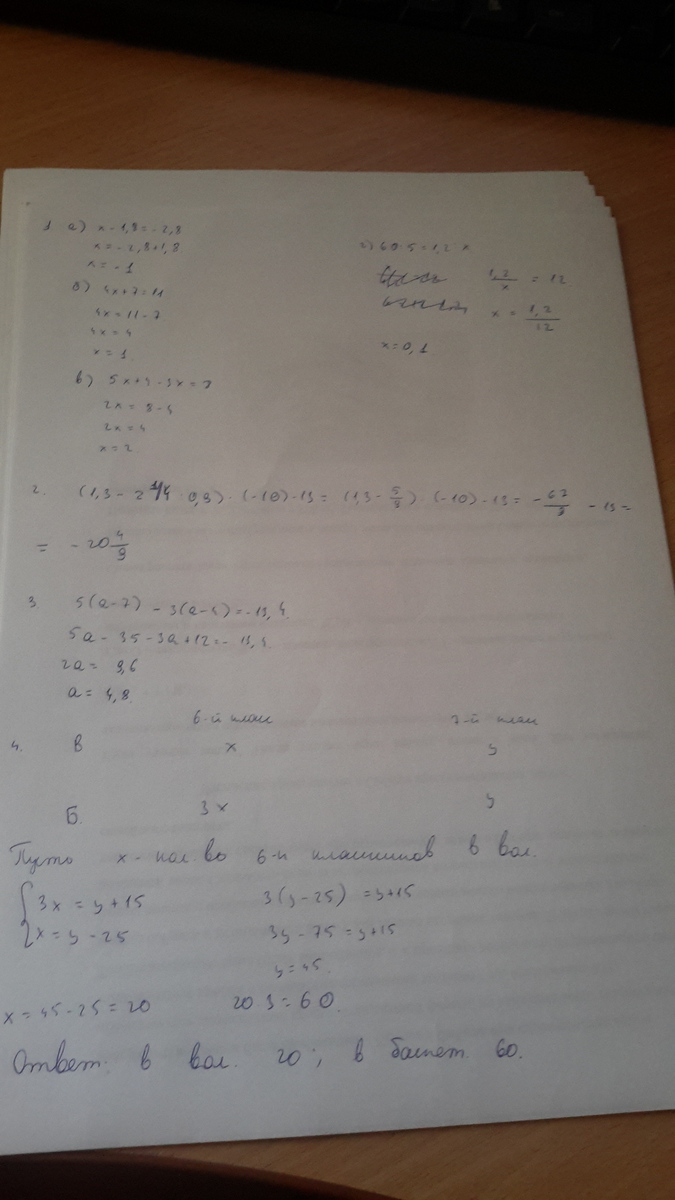 1 а) x - 1,8 = -2,8
x = -2,8 + 1,8
x = -1
б) 4x + 7 = 11
4x = 11 - 7
4x = 4
x = 1
в) 5x + 4 - 3x = 8
2x = 8 - 4
2x = 4
x = 2
г) 60 : 5 = 1,2 : x
1,2/x = 12
x = 1,2/12
x = 0,1
2. (1,3 - 2 1/4 · 0,9) · (-10) - 13 = (1,3 - 5/9) · (-10) - 13 = -67/9 - 13 =
= -20 4/9
3. 5(a - 7) - 3(a - 4) = -13,4
5a - 35 - 3a + 12 = -13,4
2a = 9,6
a = 4,8
6-й класс 7-й класс
4. В x y
Б. 3x y
Пусть x - кол. во 6-к классников в вол.
3x = y + 15
x = y - 25
3(y - 25) = y + 15
3y - 75 = y + 15
y = 45.
x = 45 - 25 = 20 20 · 3 = 60.
Ответ: в вол. 20; в баскет 60.